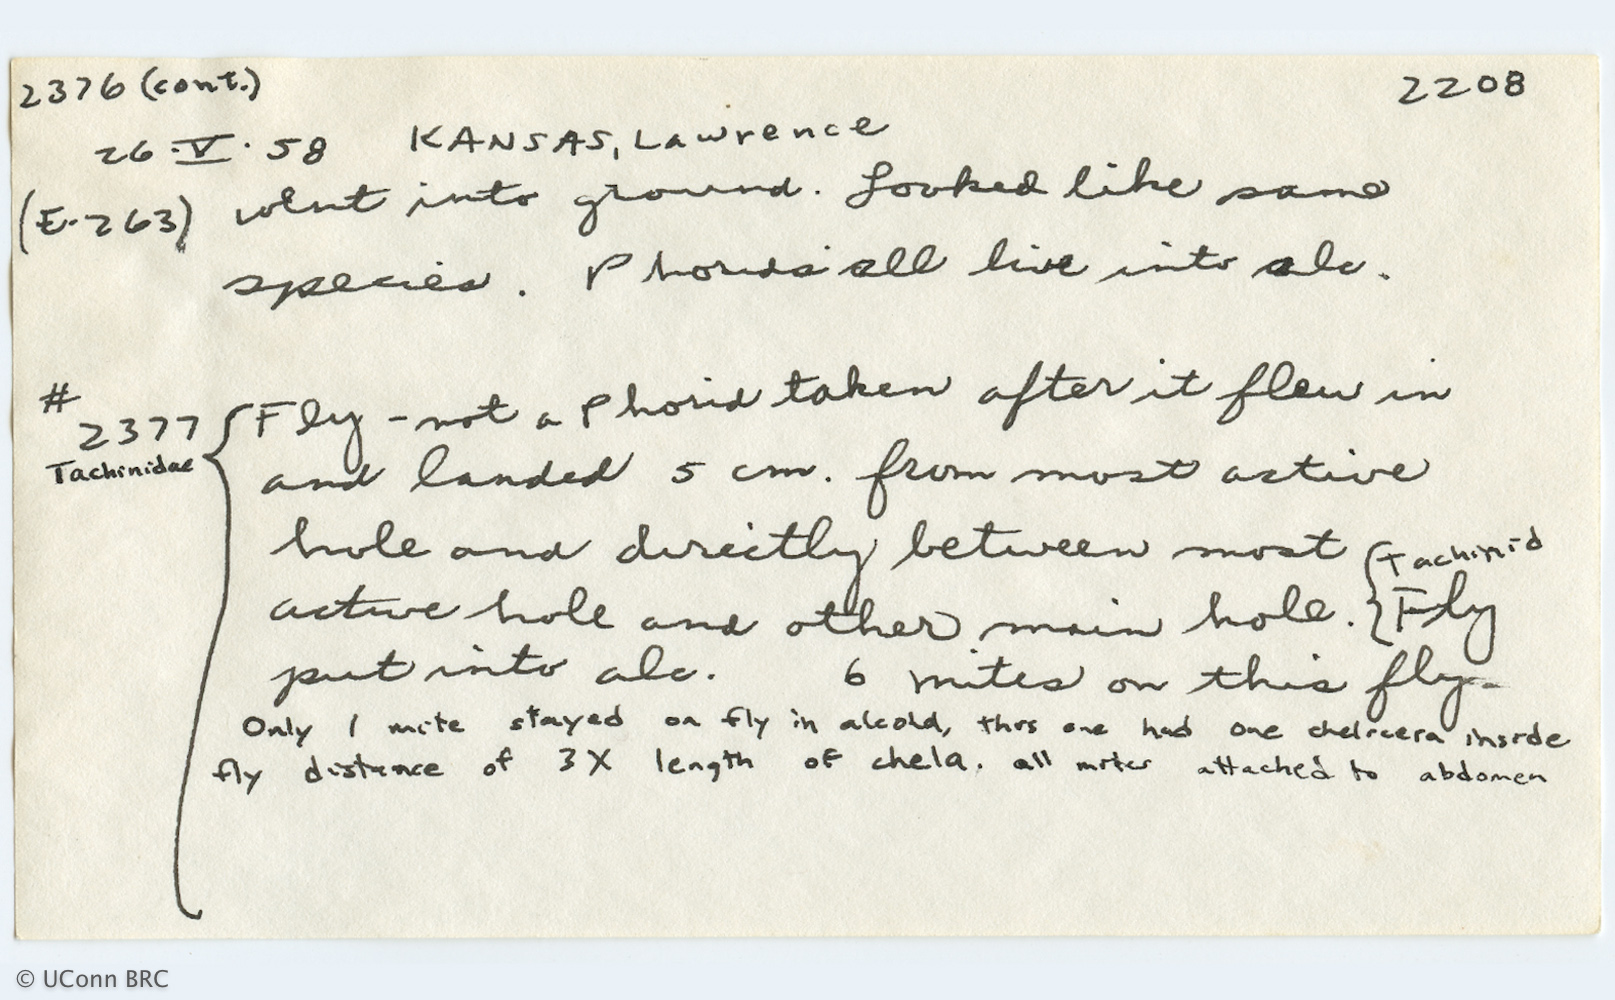 2376 (cont.) 2208
26·V·58 KANSAS, Lawrence
(E-263) went into ground. Looked like same
species. Phorids all live into alc.
#
2377 Fly - not a Phorid taken after it flew in
Tachinidae and landed 5 cm. from most active
hole and directly between most Tachinid
active hole and other main hole. Fly
put into alc. 6 mites on this fly.
Only 1 mite stayed on fly in alcohol, this one had one chelicera inside
fly distance of 3X length of chela. all mites attached to abdomen
© UConn BRC